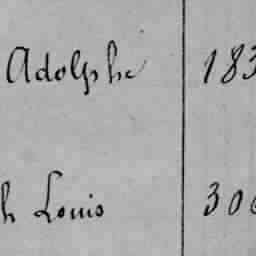 Adolphe 183
h Louis 300